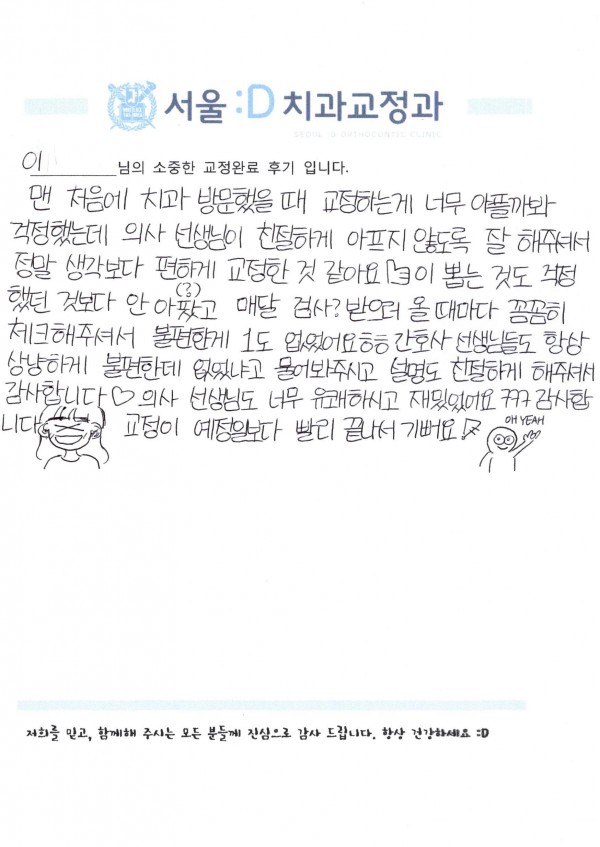 서울 :D 치과교정과
SEOUL :D ORTHODONTIC CLINIC
이 님의 소중한 교정완료 후기 입니다.
맨 처음에 치과 방문했을 때 교정하는게 너무 아플까봐
걱정했는데 의사 선생님이 친절하게 아프지 않도록 잘 해주셔서
정말 생각보다 편하게 교정한 것 같아요 이 뽑는 것도 걱정
했던 것보다 안 아팠고 (?) 매달 검사? 받으러 올 때마다 꼼꼼히
체크해주셔서 불편한게 1도 없었어요ㅎㅎ 간호사 선생님들도 항상
상냥하게 불편한데 없었냐고 물어봐주시고 설명도 친절하게 해주셔서
감사합니다♡ 의사 선생님도 너무 유쾌하시고 재밌었어요 ㅋㅋㅋ 감사합
니다 교정이 예정일보다 빨리 끝나서 기뻐요!
OH YEAH
저희를 믿고, 함께해 주시는 모든 분들께 진심으로 감사 드립니다. 항상 건강하세요 :D